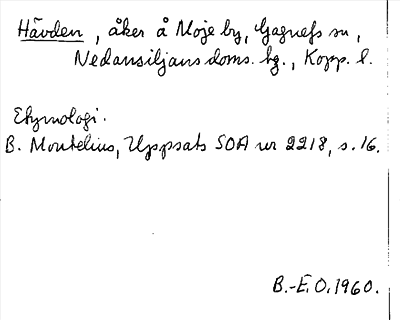 Hävden, åker å Moje by, Gagnefs sn,
Nedansiljans doms. hg., Kopp. l.
Etymologi.
B. Montelius, Uppsats SOA nr 2218, s. 16.
B.-E.O. 1960.